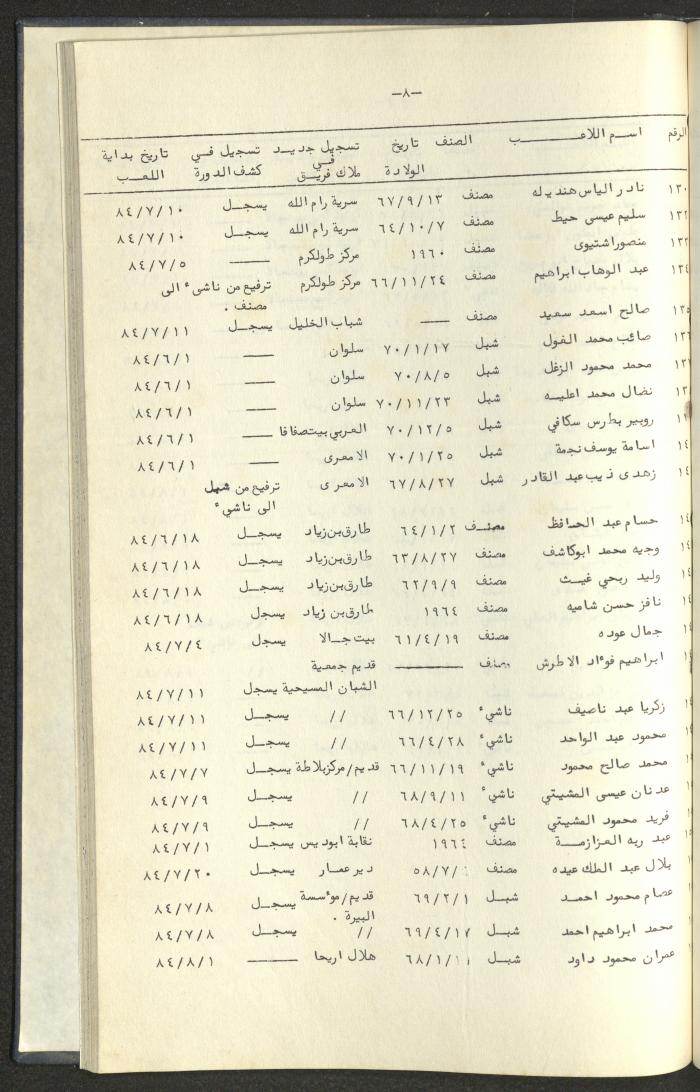 -٨-
الرقم اسم اللاعب الصنف تاريخ الولادة تسجيل جديد في ملاك فريق تسجيل في كشف الدورة تاريخ بداية اللعب
١٣٠ نادر الياس هنديله مصنف ٦٧/٩/١٣ سرية رام الله يسجل ٨٤/٧/١٠
سليم عيسى حيط مصنف ٦٤/١٠/٧ سرية رام الله يسجل ٨٤/٧/١٠
منصور اشتيوى مصنف ١٩٦٠ مركز طولكرم ـــ ٨٤/٧/٥
١٣٤ عبد الوهاب ابراهيم مصنف ٦٦/١١/٢٤ مركز طولكرم ترفيع من ناشيء الى
مصنف .
١٣٥ صالح اسعد سعيد مصنف ـــ شباب الخليل يسجل ٨٤/٧/١١
صائب محمد الغول شبل ٧٠/١/١٧ سلوان ـــ ٨٤/٦/١
محمد محمود الزغل شبل ٧٠/٨/٥ سلوان ـــ ٨٤/٦/١
نضال محمد اعليه شبل ٧٠/١١/٢٣ سلوان ـــ ٨٤/٦/١
روبير بطرس سكافي شبل ٧٠/١٢/٥ العربي بيت صفافا ـــ ٨٤/٦/١
اسامة يوسف نجمة شبل ٧٠/١/٢٥ الامعرى ـــ ٨٤/٦/١
زهدى ذيب عبد القادر شبل ٦٧/٨/٢٧ الامعرى ترفيع من شبل
الى ناشيء
حسام عبد الحافظ مصنف ٦٤/١/٢ طارق بن زياد يسجل ٨٤/٦/١٨
وجيه محمد ابوكاشف مصنف ٦٣/٨/٢٧ طارق بن زياد يسجل ٨٤/٦/١٨
وليد ربحي غيث مصنف ٦٢/٩/٩ طارق بن زياد يسجل ٨٤/٦/١٨
نافز حسن شاميه مصنف ١٩٦٤ طارق بن زياد يسجل ٨٤/٦/١٨
جمال عوده مصنف ٦١/٤/١٩ بيت جالا يسجل ٨٤/٧/٤
ابراهيم فوءاد الاطرش مصنف ـــ قديم جمعية
الشبان المسيحية يسجل ٨٤/٧/١١
زكريا عبد ناصيف ناشيء ٦٦/١٢/٢٥ // يسجل ٨٤/٧/١١
محمود عبد الواحد ناشيء ٦٦/٤/٢٨ // يسجل ٨٤/٧/١١
محمد صالح محمود ناشيء ٦٦/١١/١٩ قديم/مركز بلاطة يسجل ٨٤/٧/٧
عدنان عيسى المشيتي ناشيء ٦٨/٩/١١ // يسجل ٨٤/٧/٩
فريد محمود المشيتي ناشيء ٦٨/٤/٢٥ // يسجل ٨٤/٧/٩
عبد ربه العزازمة مصنف ١٩٦٤ نقابة ابوديس يسجل ٨٤/٧/١
بلال عبد الملك عيده مصنف ٥٨/٧/ دير عمار يسجل ٨٤/٧/٢٠
عصام محمود احمد شبل ٦٩/٢/١ قديم/موءسسة يسجل ٨٤/٧/٨
البيرة .
محمد ابراهيم احمد شبل ٦٩/٤/١٧ // يسجل ٨٤/٧/٨
عمران محمود داود شبل ٦٨/١/١ هلال اريحا ـــ ٨٤/٨/١